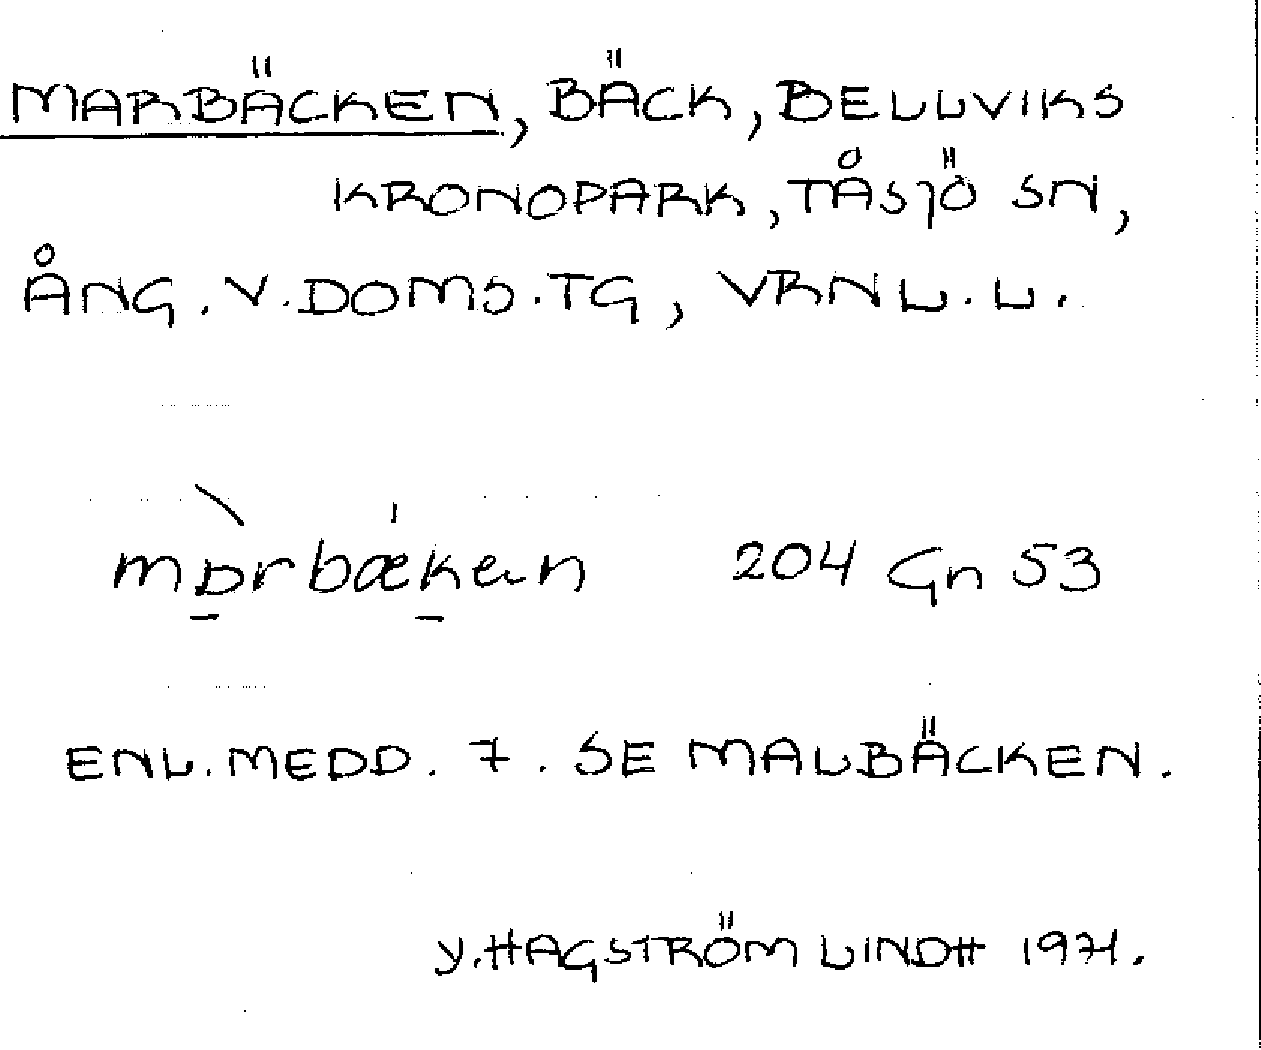 MARBÄCKEN, BÄCK, BELLVIKS
KRONOPARK, TÅSJÖ SN,
ÅNG. V. DOMS. TG, VRNL. L.
204 Gn 53
ENL. MEDD. 7. SE MALBÄCKEN.
Y. HAGSTRÖM LINDH 1971.